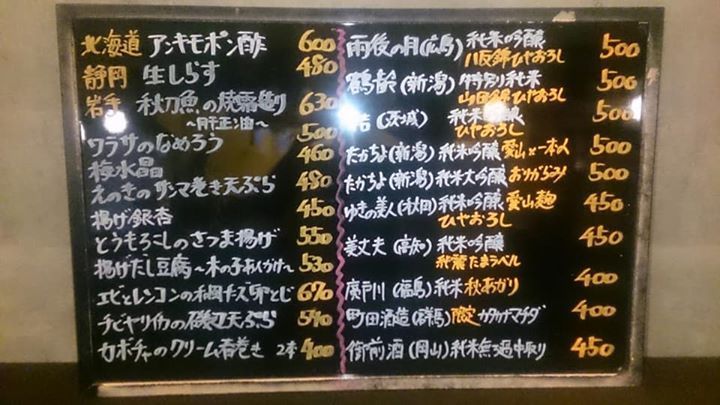 北海道 アンキモポン酢 600
静岡 生しらす 480
岩手 秋刀魚の焼霜造り 630
～肝正油～
ワラサのなめろう 500
梅水晶 460
えのきのサンマ巻き天ぷら 480
揚げ銀杏 450
とうもろこしのさつま揚げ 550
揚げだし豆腐～木の子あんかけ～ 530
エビとレンコンの和風チーズ卵とじ 670
チビヤリイカの磯辺天ぷら 590
カボチャのクリーム春巻き 2本 400
雨後の月(広島) 純米吟醸 500
八反錦ひやおろし
鶴齢(新潟) 特別純米 500
山田錦ひやおろし
(茨城) 純米吟醸 500
ひやおろし
たかちよ(新潟)純米吟醸 愛山×一本〆 500
たかちよ(新潟)純米大吟醸 おりがらみ 500
ゆきの美人(秋田)純米吟醸 愛山麹 450
ひやおろし
美丈夫(高知)純米吟醸 450
純麗たまラベル
廣戸川(福島)純米 秋あがり 400
町田酒造(群馬)限定 カタカナマチダ 400
御前酒(岡山)純米無ろ過中取り 450